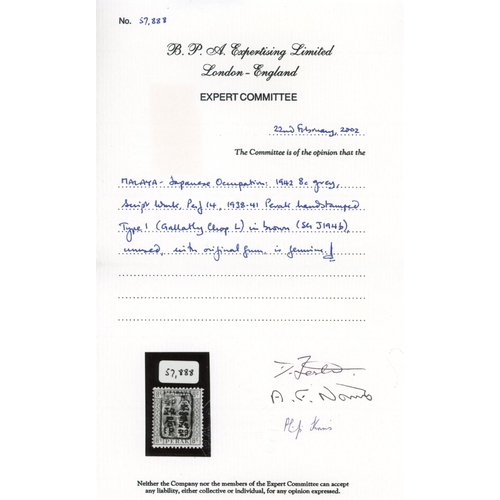 No. 57,888
B. P. A. Expertising Limited
London - England
EXPERT COMMITTEE
22nd February, 2002
The Committee is of the opinion that the
MALAYA - Japanese Occupation: 1942 8c grey,
Script Wmk, Perf 14, 1938-41 Perak handstamped
Type 1 (Gallatly Chop L) in brown (SG J194b),
unused, with original gum, is genuine.
57,888
PERAK
A. F. Norris
Neither the Company nor the members of the Expert Committee can accept
any liability, either collective or individual, for any opinion expressed.